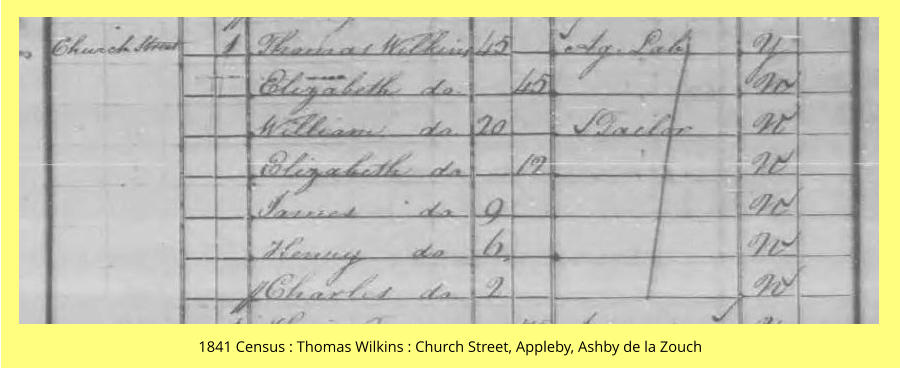 Church Street 1 Thomas Wilkins 45 Ag. Lab Y
Elizabeth do 45 N
William do 20 Tailor N
Elizabeth do 12 N
James do 9 N
Henry do 6 N
Charles do 2 N
1841 Census : Thomas Wilkins : Church Street, Appleby, Ashby de la Zouch